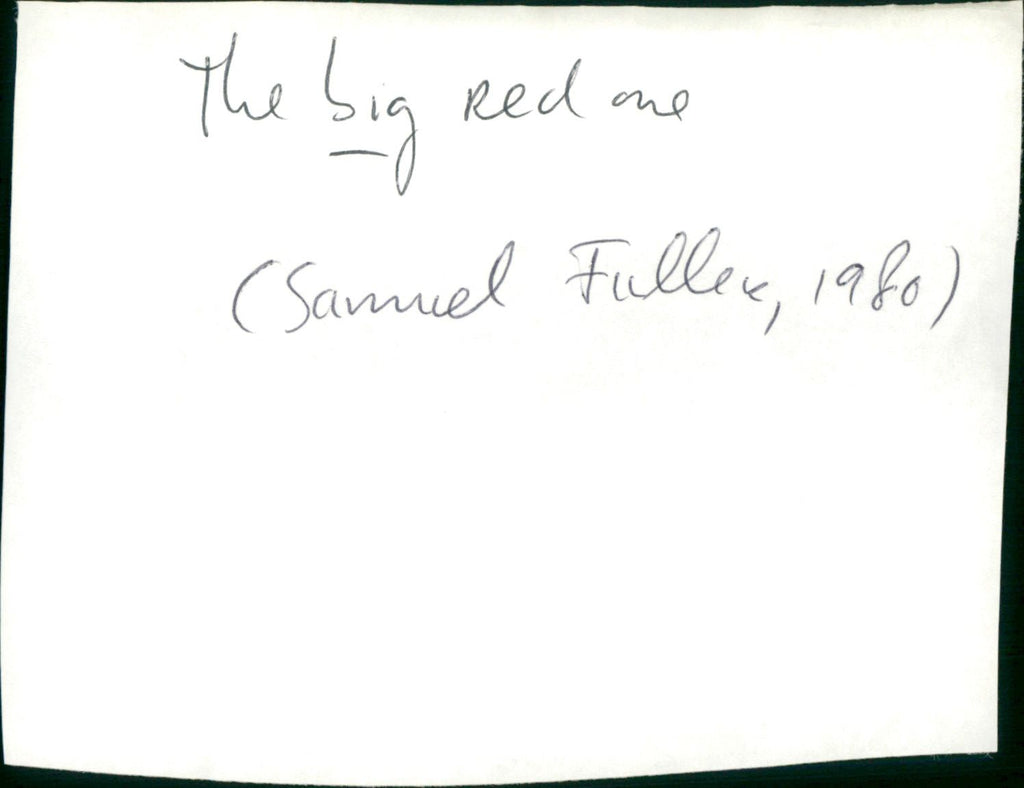 The big Red one
(Samuel Fuller, 1980)